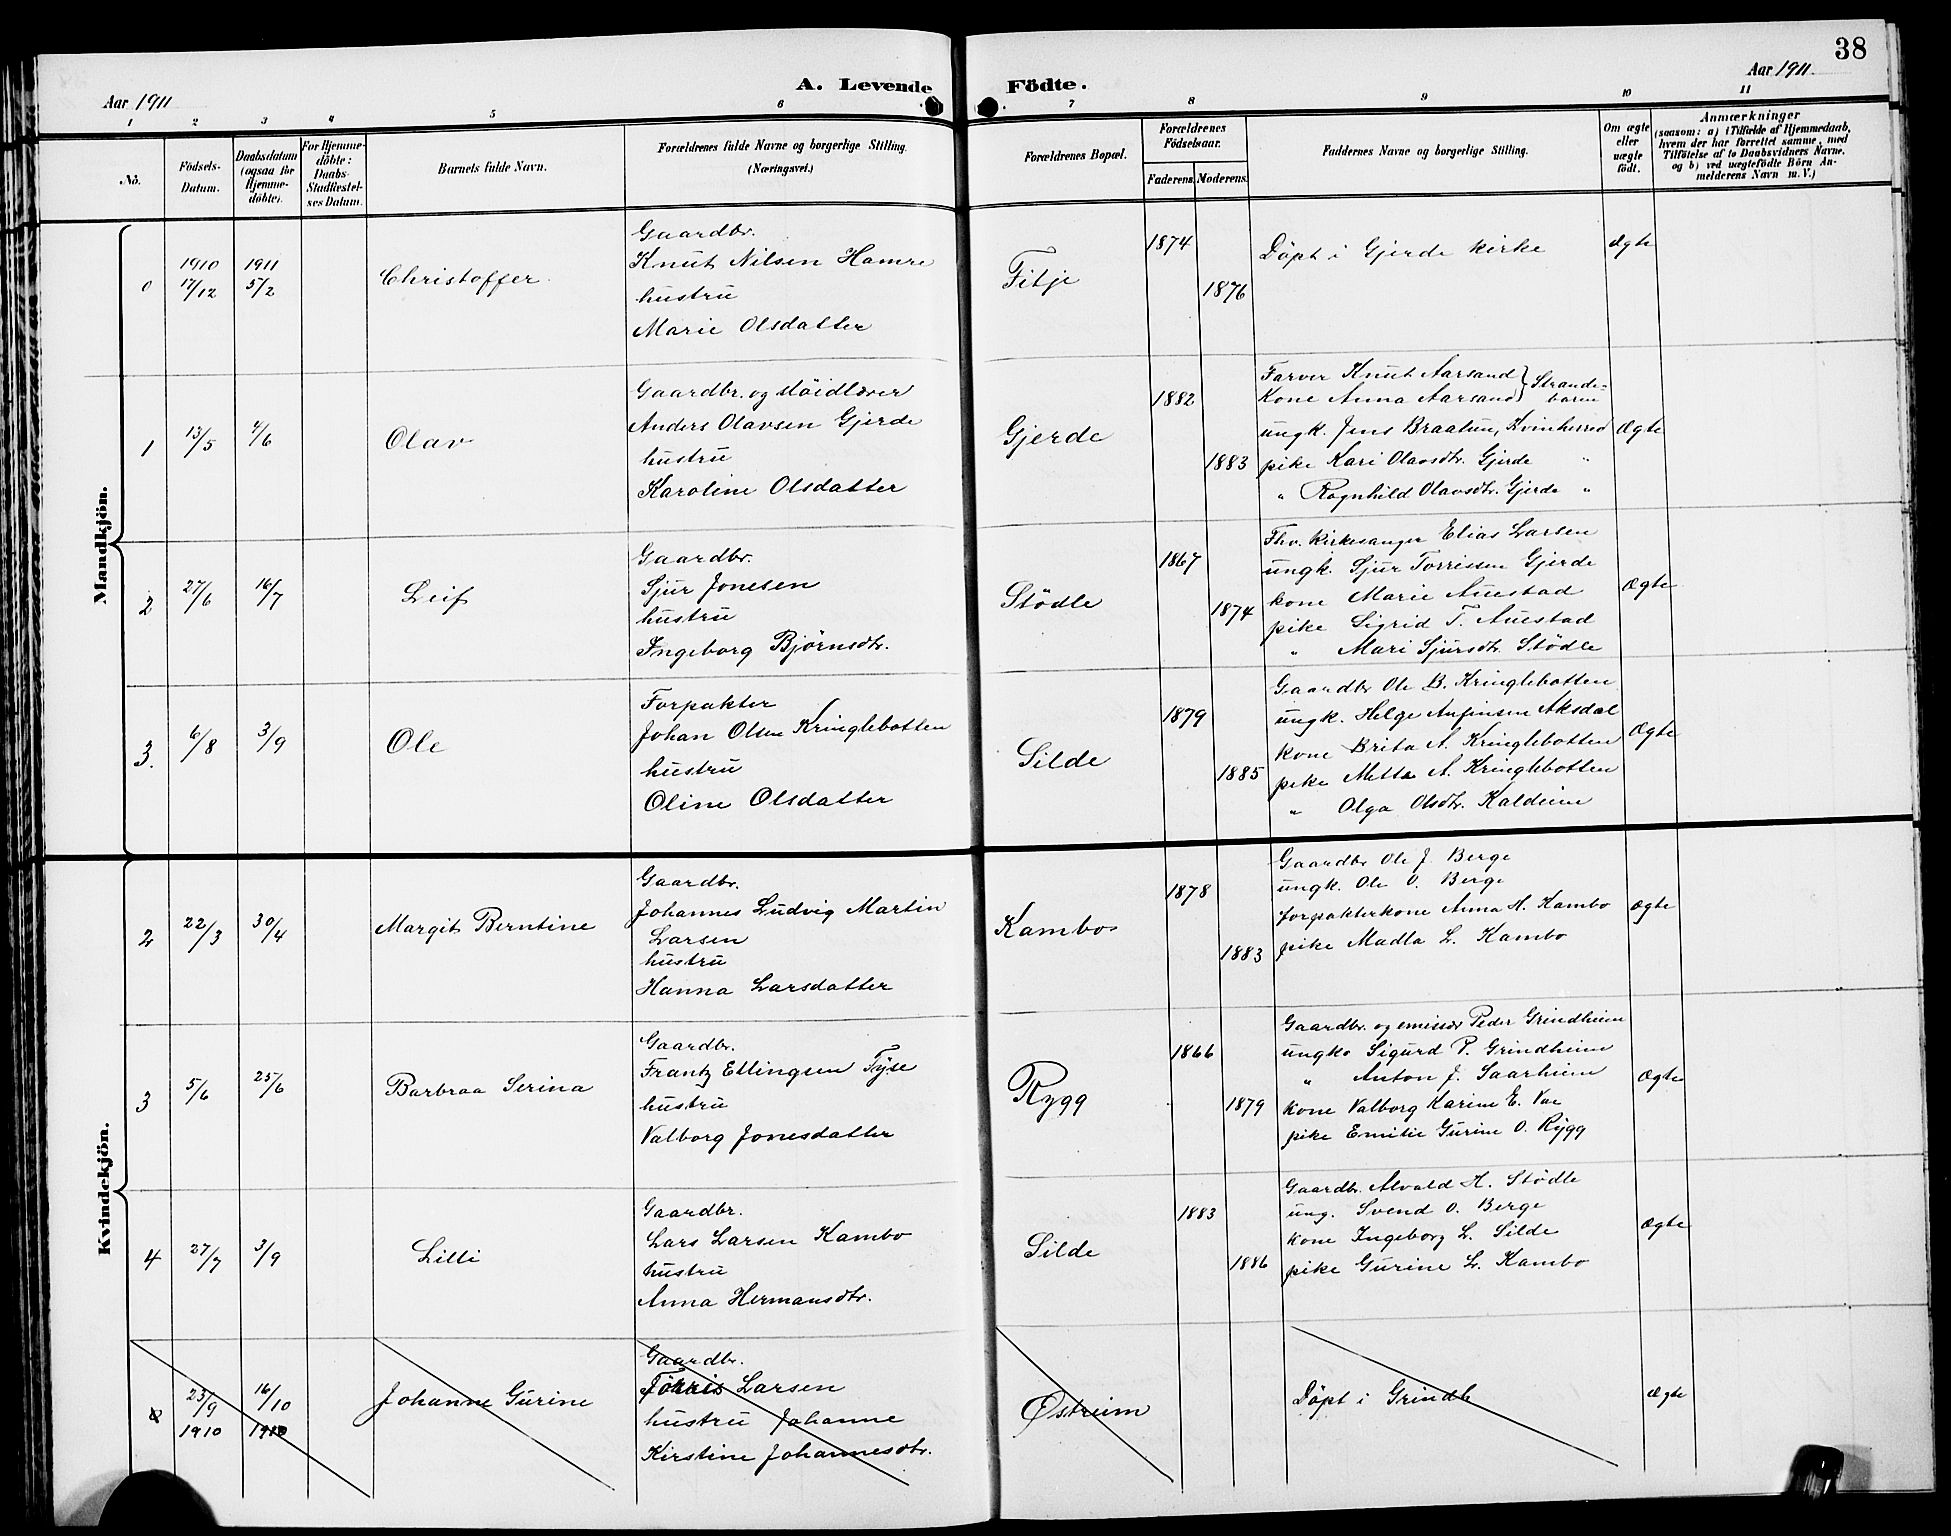 38
A. Levende Födte.
Aar 1911
Aar 1911.
1 2 3 4 5 6 7 8 9 10 11
No.
Födsels-
Datum.
Daabsdatum
(ogsaa for
Hjemme-
döbte).
For Hjemme-
döbte:
Daabs-
Stadfæstel-
ses Datum.
Barnets fulde Navn.
Forældrenes fulde Navne og borgerlige Stilling.
(Næringsvei.)
Forældrenes Bopæl.
Forældrenes
Födselsaar.
Faderens.
Moderens.
Faddernes Navne og borgerlige Stilling.
Om ægte
eller
uægte
födt.
Anmærkninger
(saasom: a) i Tilfælde af Hjemmedaab,
hvem der har forrettet samme, med
Tilföielse af to Daabsvidners Navne,
og b) ved uægtefödte Börn An-
melderens Navn m. V.)
Mandkjön.
0
1910
17/12
1911
5/2
Christoffer
Gaardbr.
Knut Nilsen Hamre
hustru
Marie Olsdatter
Fitje
1874
1876
Döpt i Gjerde kirke
Ægte
1
13/5
4/6
Olav
Gaardbr. og slöidlærer
Anders Olavsen Gjerde
hustru
Karoline Olsdatter
Gjerde
1882
1883
Farver Knut Aarsand } Strande-
Kone Anna Aarsand } barm
ungk. Jens Braatun, Kvinherred
pike Kari Olavsdtr. Gjerde "
" Ragnhild Olavsdtr. Gjerde "
Ægte
2
27/6
16/7
Leif
Gaardbr.
Sjur Jonesen
hustru
Ingeborg Bjørnsdtr.
Stödle
1867
1874
Fhv. kirkesanger Elias Larsen
ungk. Sjur Torrissen Gjerde
kone Marie Auestad
pike Sigrid T. Auestad
" Mari Sjursdtr. Stödle
Ægte
3.
6/8
3/9
Ole
Forpakter
Johan Olsen Kringlebotten
hustru
Oline Olsdatter
Silde
1879
1885
Gaardbr Ole B. Kringlebotten
ungk. Helge Anfinsen Aksdal
kone Brita A. Kringlebotten
pike Metta A. Kringlebotten
" Olga Olsdtr. Kaldeim
Ægte
Kvindekjön.
2
22/3
30/4
Margit Berntine
Gaardbr.
Johannes Ludvig Martin
Larsen
hustru
Hanna Larsdatter
Kambo
1878
1883
Gaardbr Ole J. Berge
ungk. Ole O. Berge
forpakterkone Anna H. Kambo
pike Madla L. Kambo
Ægte
3
5/6
25/6
Barbraa Serina
Gaardbr.
Frantz Ellingsen Tyse
hustru
Valborg Jonesdatter
Rygg
1866
1879
Gaardbr. og emissær Peder Grindheim
ungk. Sigurd P. Grindheim
" Anton J. Saarheim
kone Valborg Karine E. Vae
pike Emilie Gurine O. Rygg
Ægte
4
27/7
3/9
Lilli
Gaardbr.
Lars Larsen Kambo
hustru
Anna Hermansdtr.
Silde
1883
1886
Gaardbr. Alvald H. Stödle
ung. Svend O. Berge
kone Ingeborg L. Silde
pike Gurine L. Kambo
Ægte
0
23/9
1910
16/10
1910
Johanne Gurine
Gaardbr.
Törris Larsen
hustru Johanne
Kirstine Johannesdtr.
Østreim
Döpt i Grinde
Ægte